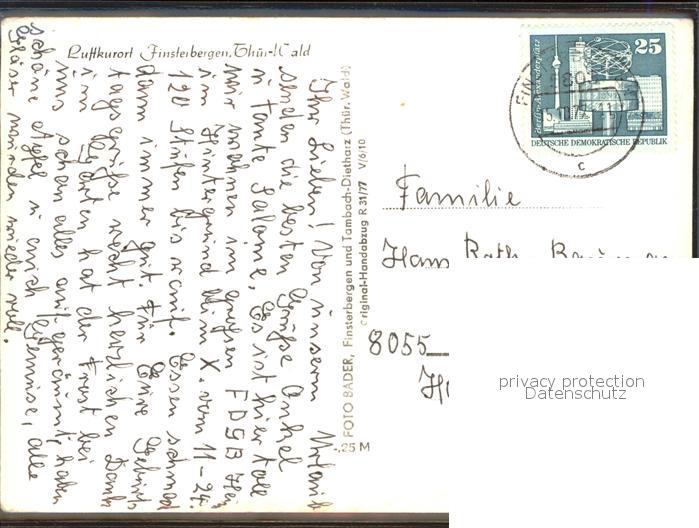 Luftkurort Finsterbergen, Thür. Wald
Ihr Lieben! Von unserm Urlaub
senden die besten Grüße Onkel
u Tante Salome. Es ist hier toll
wir wohnen im großen FDGB Heim
im Hintergrund Heim X. vom 11-24.
120 Stufen bis rauf. Essen schmeckt
dann immer gut. Für Eure Geburts
tagsgrüße recht herzlichen Dank
im Garten hat der Frost bei
uns schon alles aufgeräumt, haben
schöne Äpfel u auch Gemüse, alle
Gläser wurden wieder voll.
FOTO BADER, Finsterbergen und Tambach-Dietharz (Thür. Wald)
Original-Handabzug R 31/77 V/6/10
-,25 M
25
Berlin-Alexanderplatz
DEUTSCHE DEMOKRATISCHE REPUBLIK
c
Familie
Hans
8055
privacy protection
Datenschutz